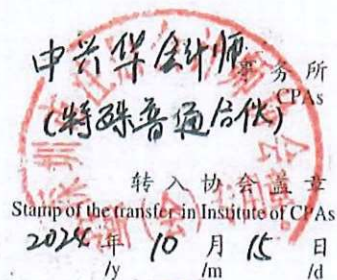 中兴华会计师事务所
CPAs
(特殊普通合伙)
转入协会盖章
Stamp of the transfer in Institute of CPAs
2024年10月15日
/y /m /d